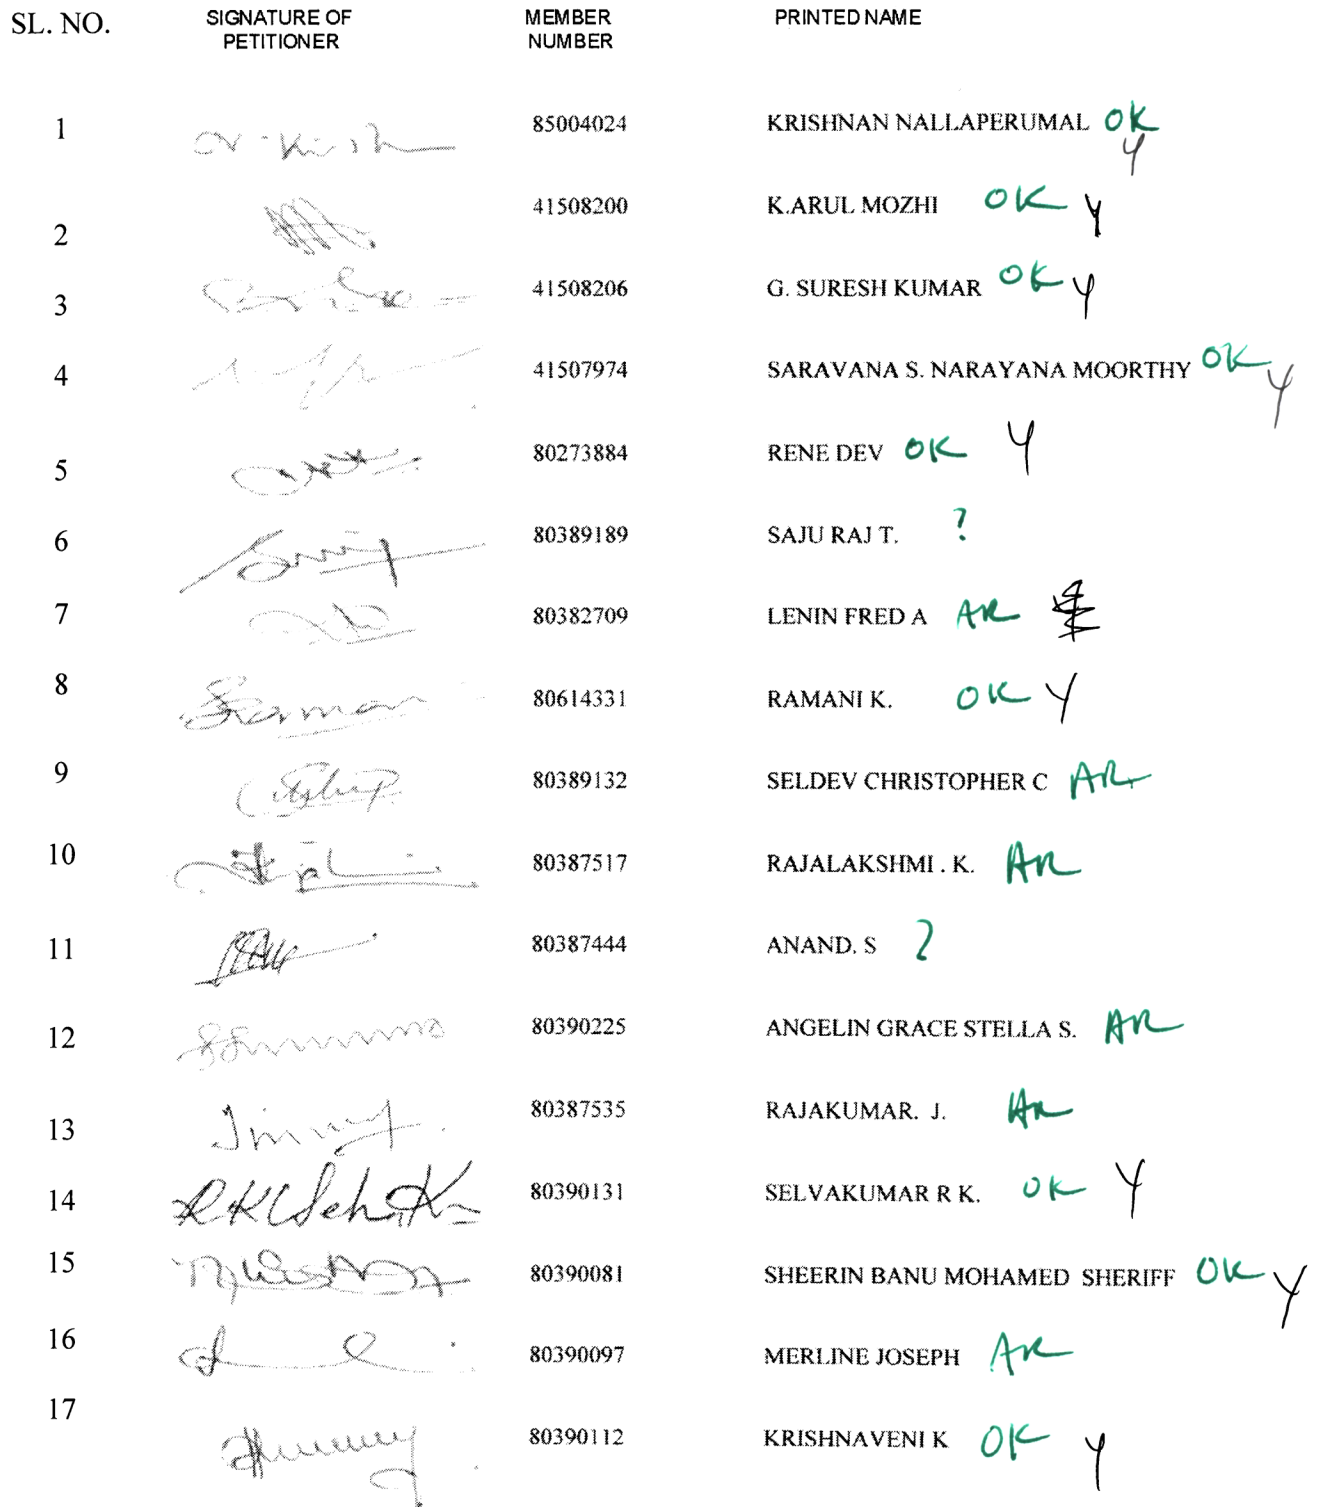 SL. NO. SIGNATURE OF PETITIONER MEMBER NUMBER PRINTED NAME
1 85004024 KRISHNAN NALLAPERUMAL OK Y
2 41508200 K.ARUL MOZHI OK Y
3 41508206 G. SURESH KUMAR OK Y
4 41507974 SARAVANA S. NARAYANA MOORTHY OK Y
5 80273884 RENE DEV OK Y
6 80389189 SAJU RAJ T. ?
7 80382709 LENIN FRED A AR
8 80614331 RAMANI K. OK Y
9 80389132 SELDEV CHRISTOPHER C AR
10 80387517 RAJALAKSHMI . K. AR
11 80387444 ANAND. S ?
12 80390225 ANGELIN GRACE STELLA S. AR
13 80387535 RAJAKUMAR. J. AR
14 80390131 SELVAKUMAR R K. OK Y
15 80390081 SHEERIN BANU MOHAMED SHERIFF OK Y
16 80390097 MERLINE JOSEPH AR
17 80390112 KRISHNAVENI K OK Y